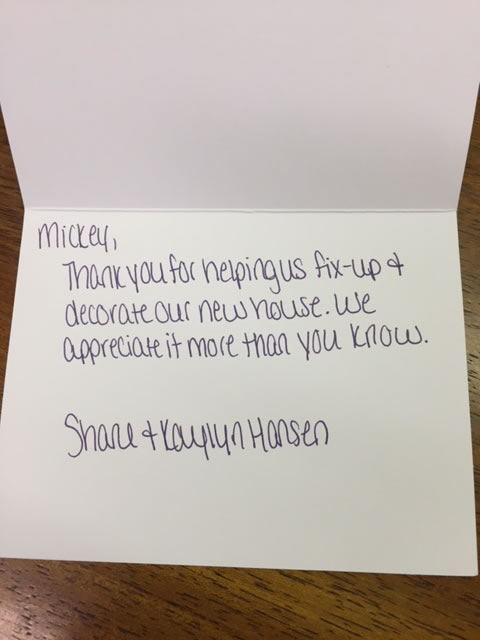 Mickey,
Thank you for helping us fix-up &
decorate our new house. We
appreciate it more than you know.
Shane & Kaylyn Hansen